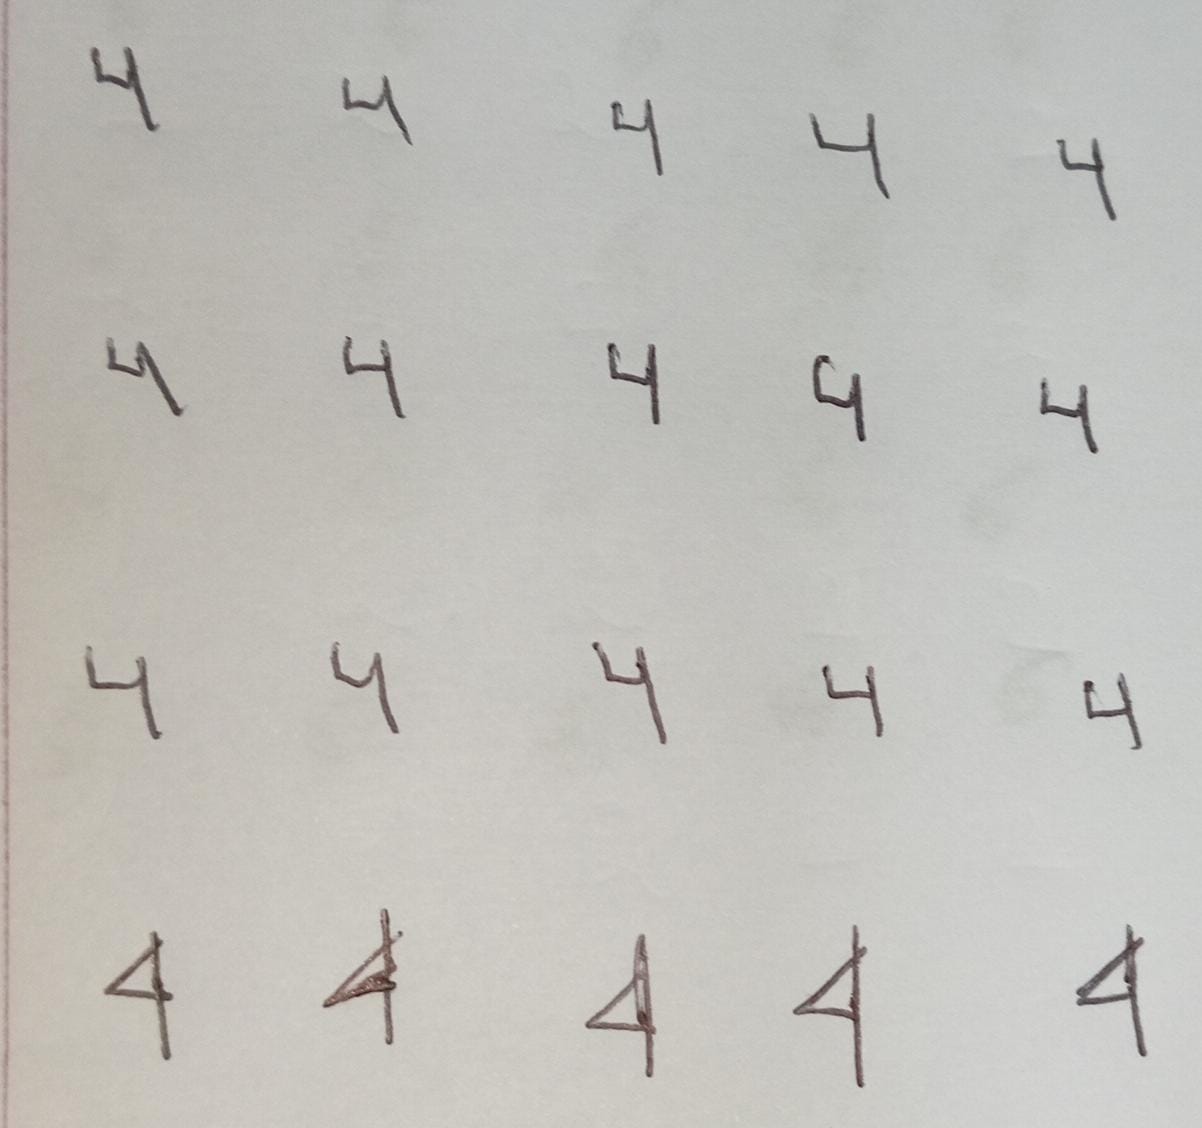 4 4 4 4 4
4 4 4 4 4
4 4 4 4 4
4 4 4 4 4